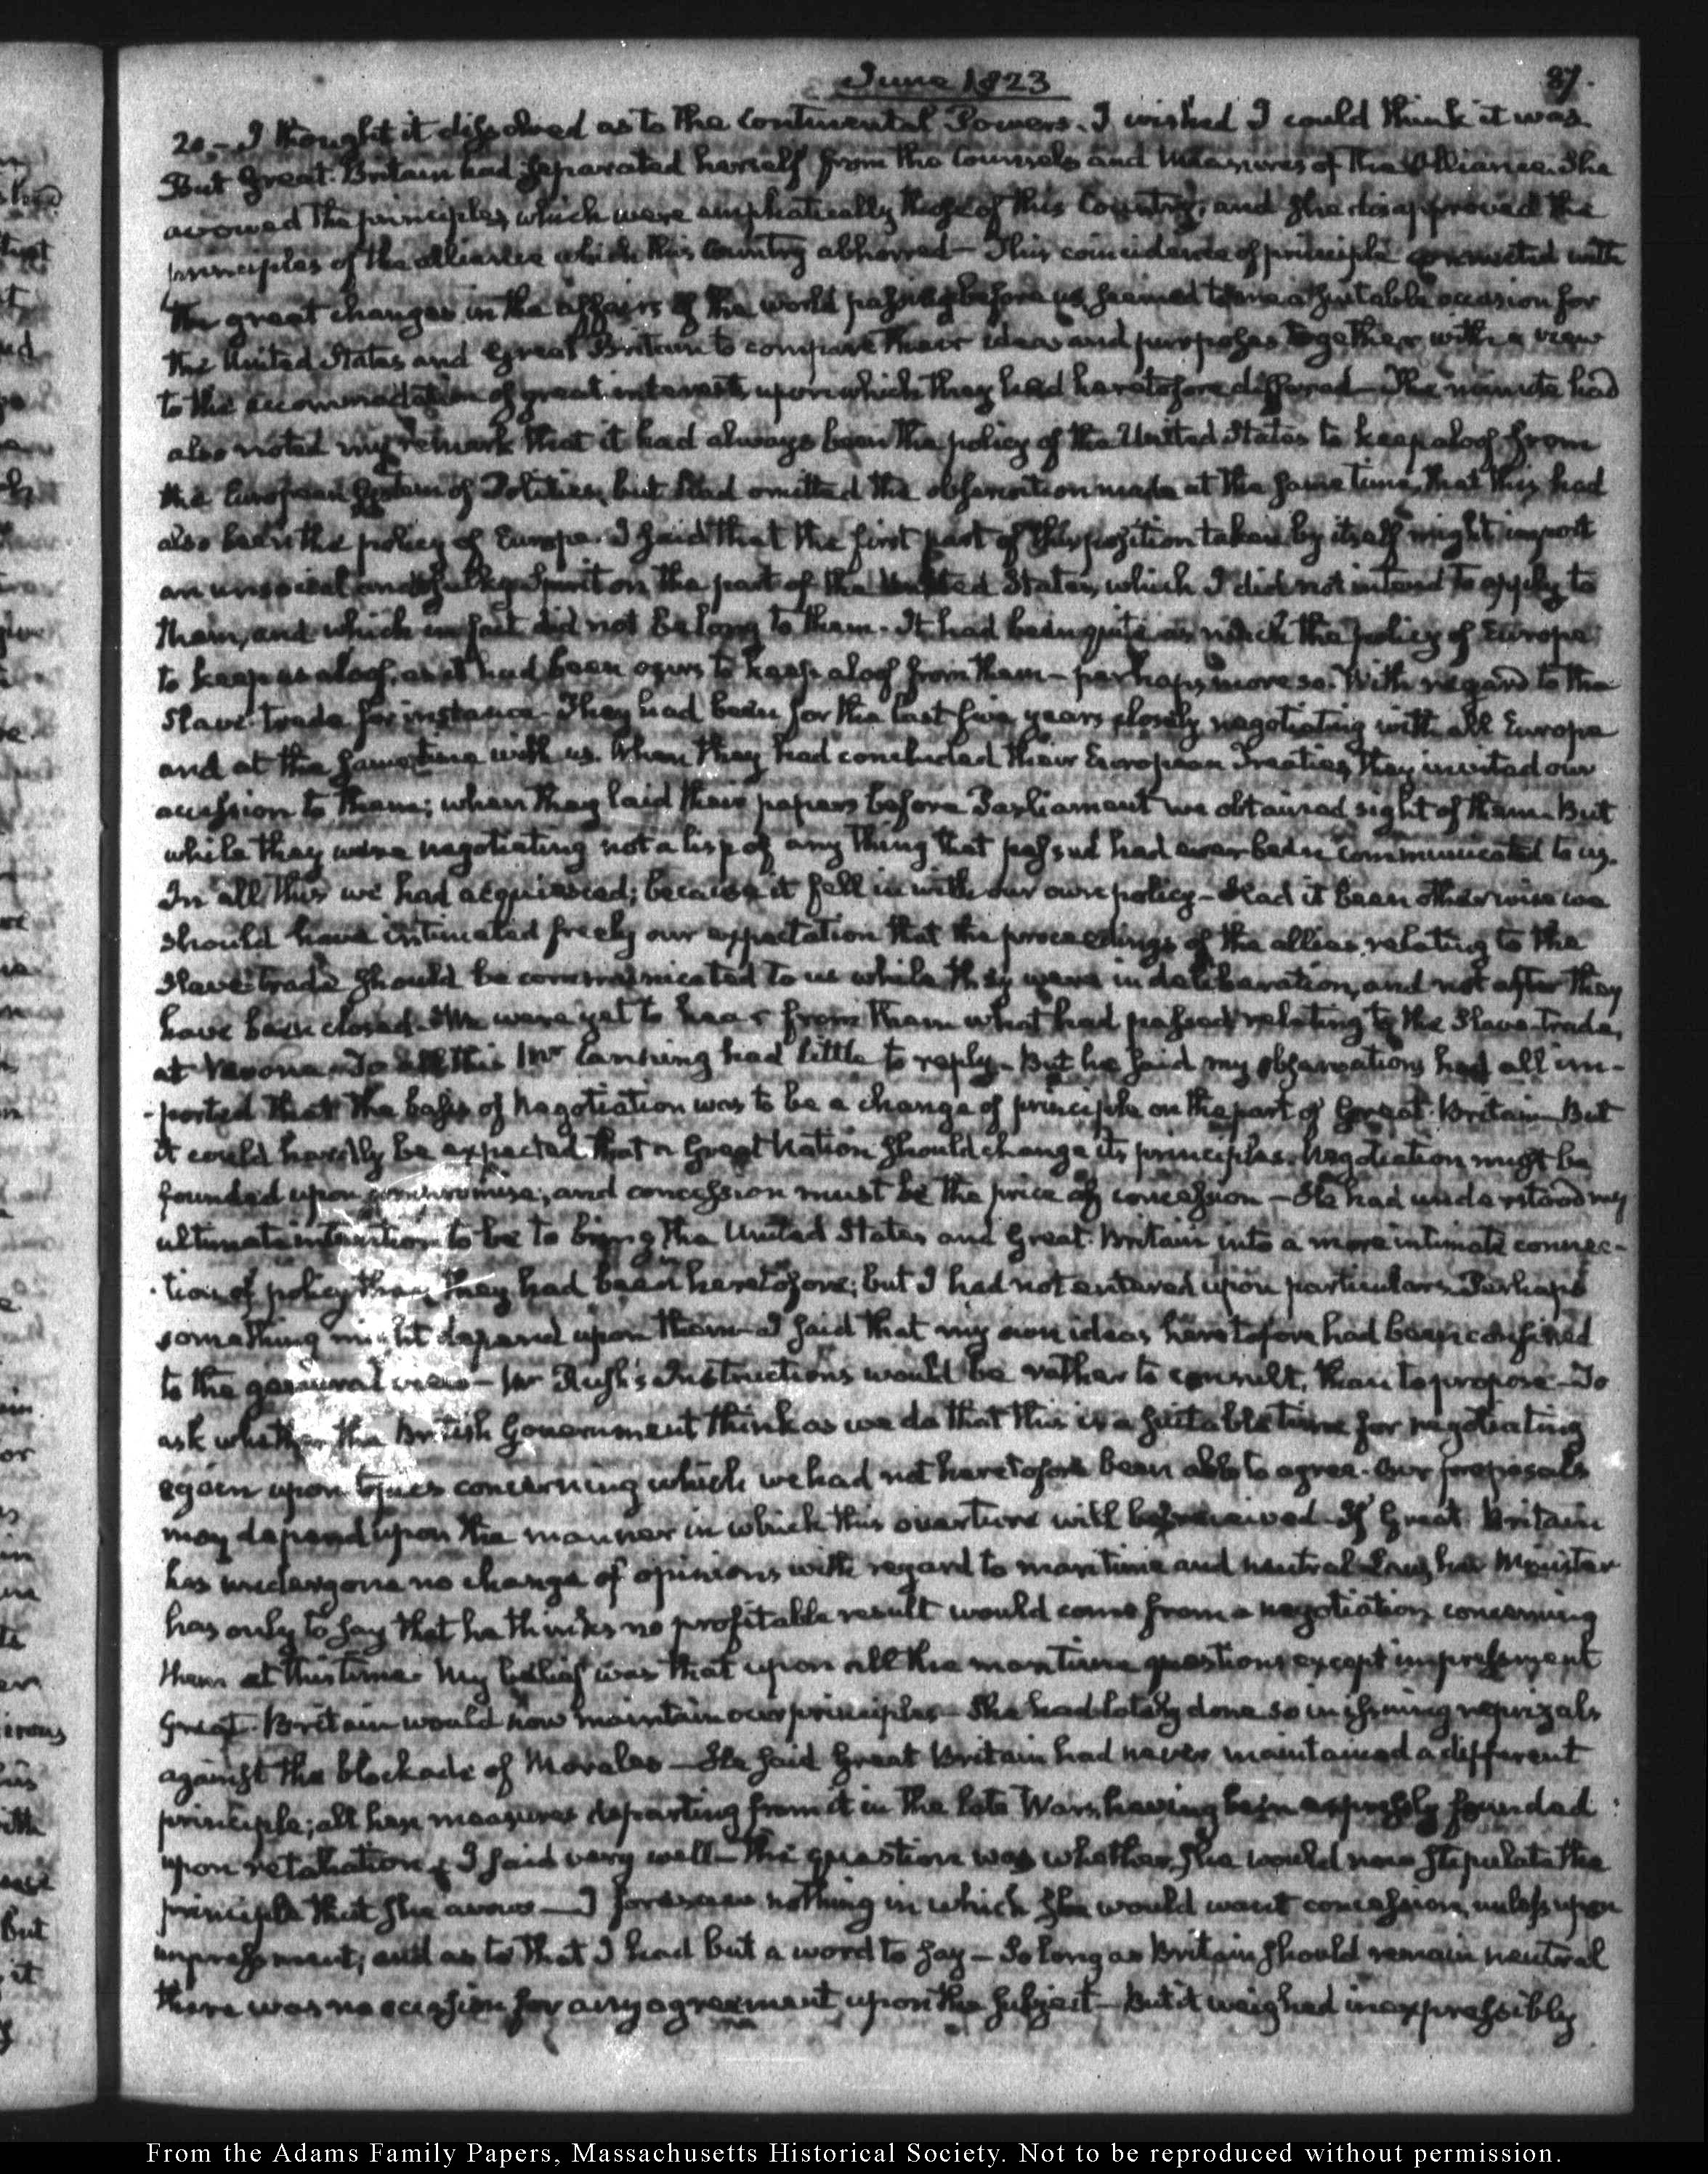 June 1823
87.
20.— I thought it dissolved as to the Continental Powers. I wished I could think it was.
But Great-Britain had separated herself from the Counsels and Measures of the Alliance. She
avowed the principles which were emphatically those of this Country, and she disapproved the
principles of the alliance which this Country abhorred— This coincidence of principle connected with
the great changes in the affairs of the world passing before us, seemed to me a suitable occasion for
the United States and Great Britain to compare their ideas and purposes together with a view
to the accommodation of great interests upon which they had heretofore differed— The minute had
also noted my remark that it had always been the policy of the United States to keep aloof from
the European System of Politics, but had omitted the observation made at the same time, that this had
also been the policy of Europe. I said that the first part of this position taken by itself might import
an unsocial and sulky Spirit on the part of the United States, which I did not intend to apply to
them, and which in fact did not belong to them. It had been quite as much the policy of Europe
to keep us aloof, as it had been ours to keep aloof from them— perhaps more so. With regard to the
Slave-trade for instance— They had been for the last five years closely negotiating with all Europe
and at the same time with us. When they had concluded their European Treaties, they invited our
accession to them; when they laid their papers before Parliament we obtained sight of them— But
while they were negotiating not a lisp of any thing that passed had ever been communicated to us.
In all this we had acquiesced; because it fell in with our own policy— Had it been otherwise we
should have intimated freely our expectation that the proceedings of the allies relating to the
Slave-trade should be communicated to us while they were in deliberation, and not after they
have been closed. We were yet to hear from them what had passed relating to the Slave-trade,
at Verona— To all this Mr Canning had little to reply— But he said my observations had all im-
-ported that the basis of Negotiation was to be a change of principle on the part of Great-Britain— But
it could hardly be expected that a Great Nation should change its principles. Negotiation might be
founded upon compromise; and concession must be the price of concession— He had understood my
ultimate intention to be to bring the United States and Great-Britain into a more intimate connec-
-tion of policy than they had been heretofore; but I had not entered upon particulars— Perhaps
something might depend upon them— I said that my own ideas heretofore had been confined
to the general view— Mr Rush's Instructions would be rather to consult, than to propose— To
ask whether the British Government think as we do that this is a suitable time for negotiating
again upon topics concerning which we had not heretofore been able to agree. Our proposals
may depend upon the manner in which this overture will be received— If Great-Britain
has undergone no change of opinions with regard to maritime and neutral Laws, her Minister
has only to say that he thinks no profitable result would come from a negotiation concerning
them at this time. My belief was that upon all the maritime questions except impressment
Great-Britain would now maintain our principles— She had lately done so in issuing reprizals
against the blockade of Morales— He said Great Britain had never maintained a different
principle; all her measures departing from it in the late Wars, having been expressly founded
upon retaliation. I said very well— The question was whether she would now stipulate the
principle that she avows— I foresaw nothing in which she would want concession, unless upon
impressment; and as to that I had but a word to say— So long as Britain should remain neutral
there was no occasion for any agreement upon the subject— But it weighed inexpressibly
From the Adams Family Papers, Massachusetts Historical Society. Not to be reproduced without permission.